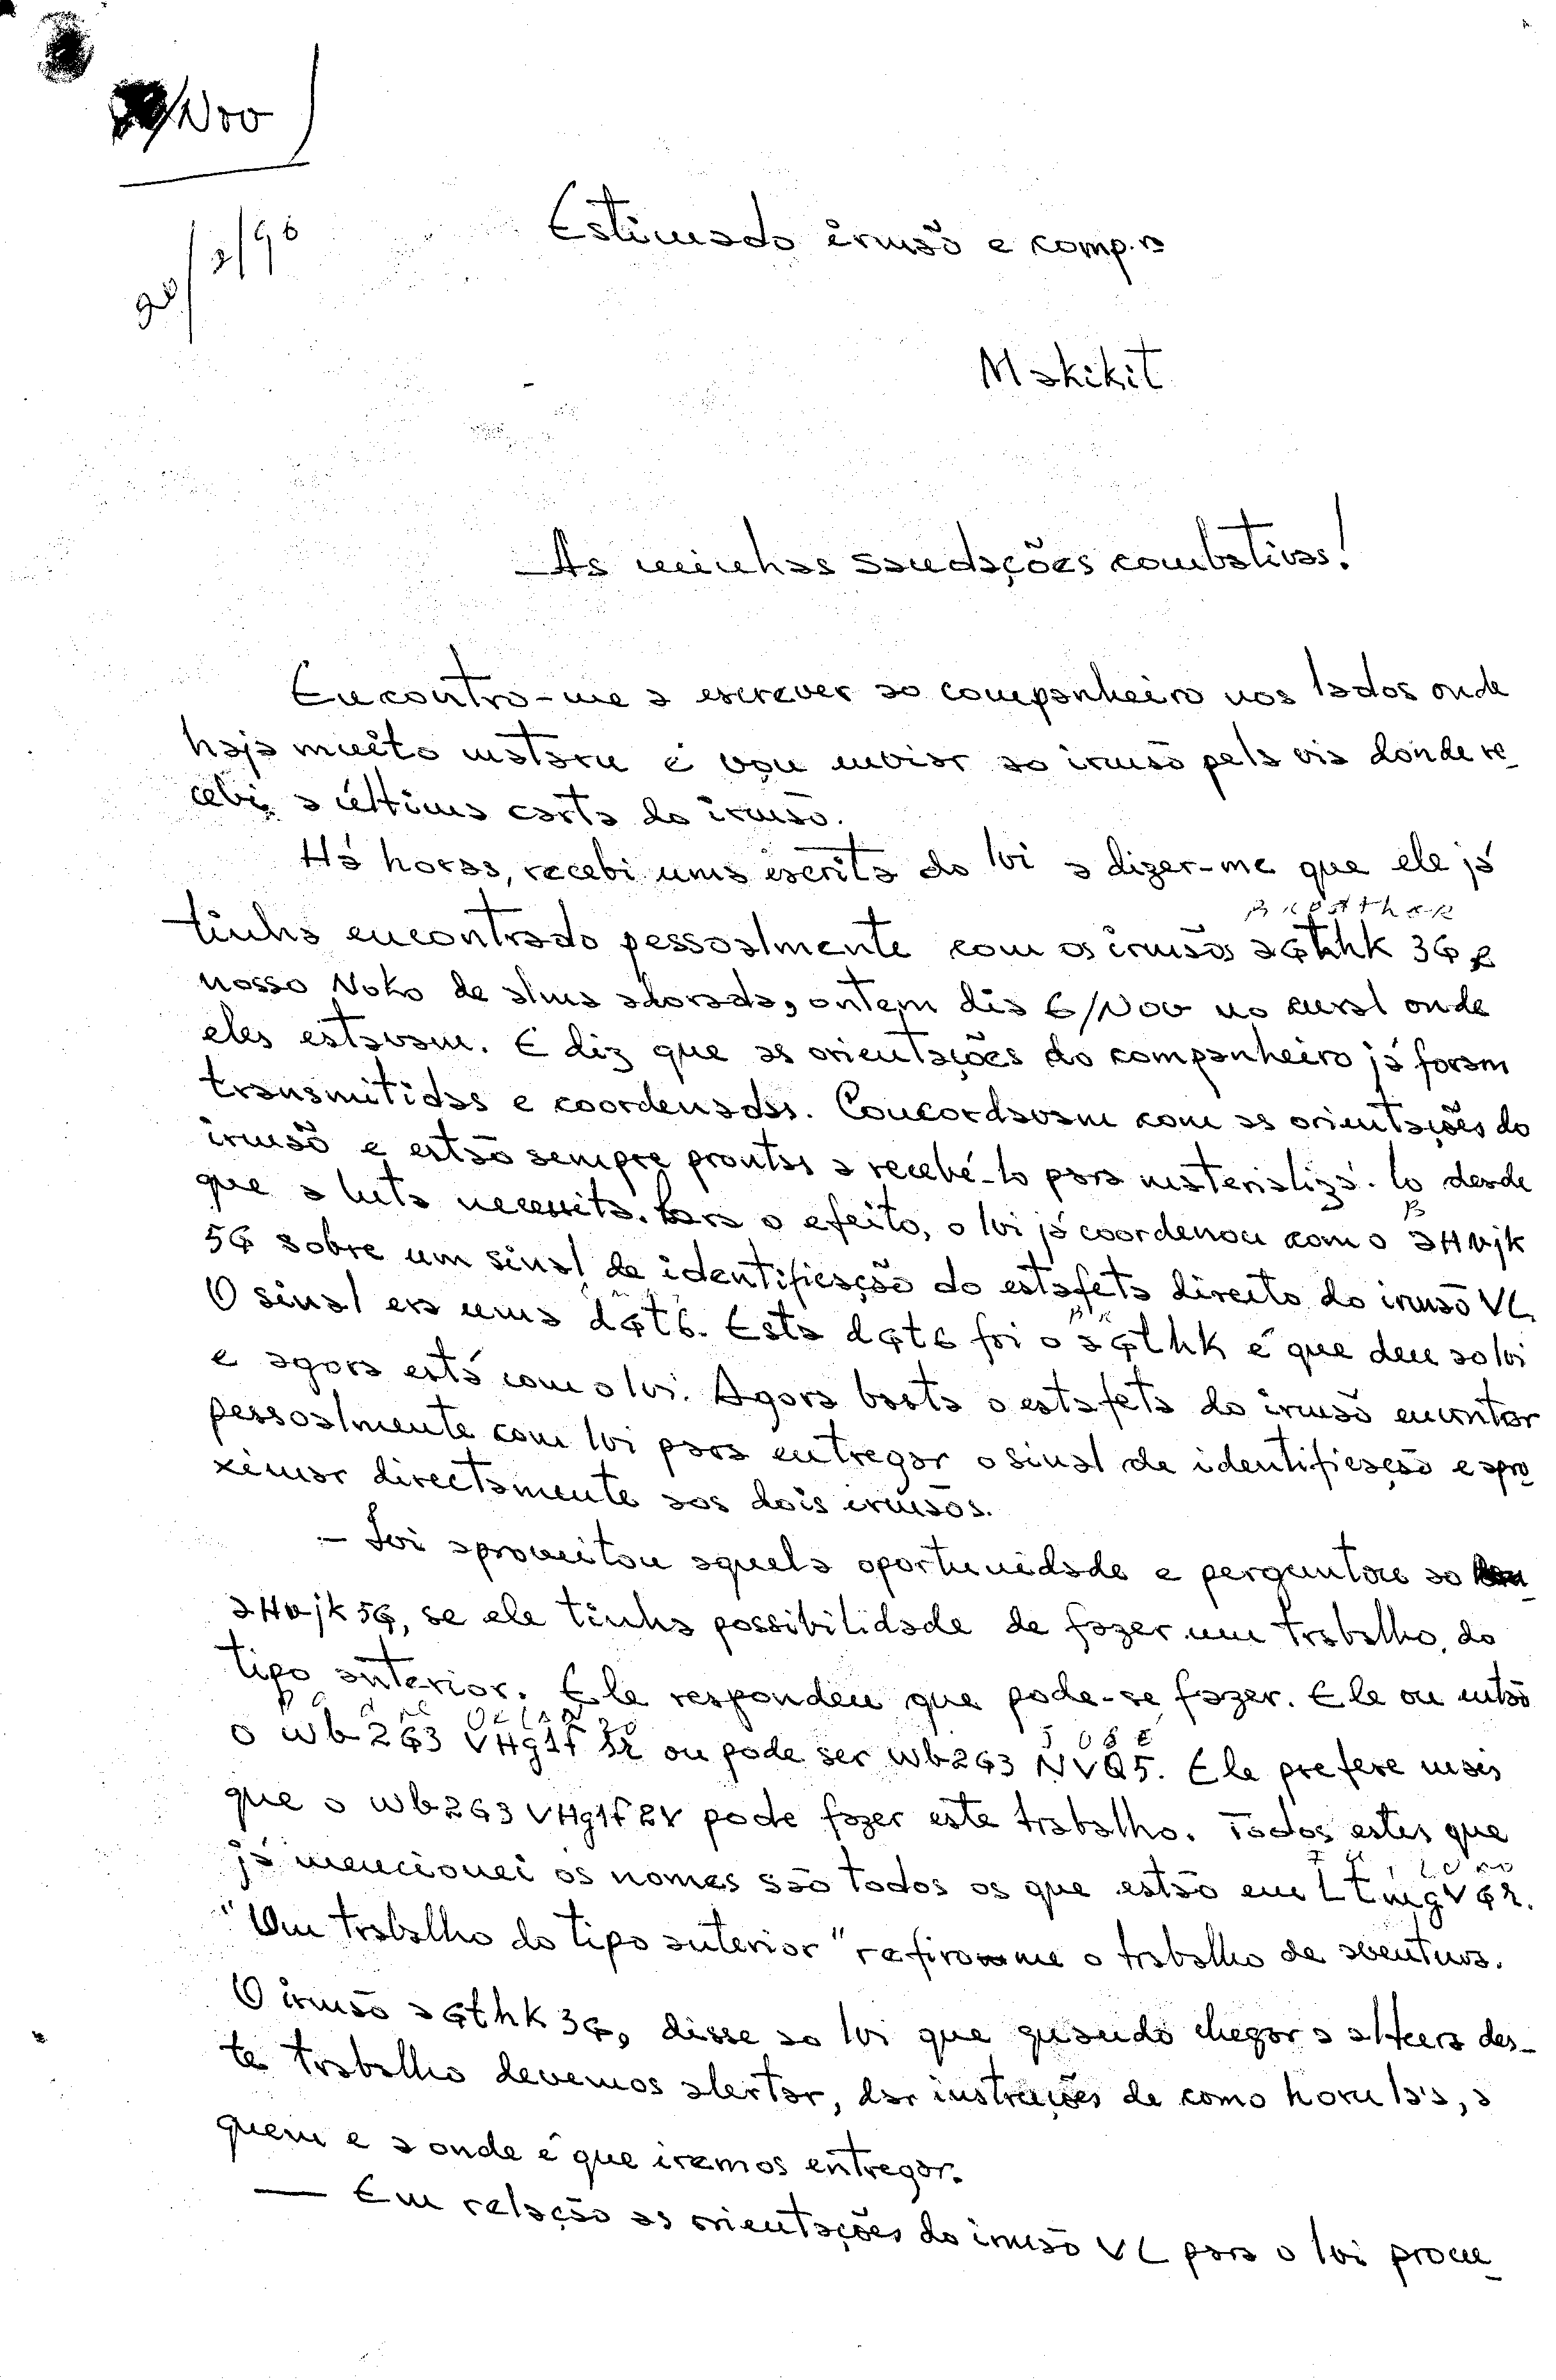 /Nov
20/2/96
Estimado irmão e comp.ro
Makikit
As minhas saudações combativas!
Encontro-me a escrever ao companheiro nos lados onde
haja muito mataru e vou enviar ao irmão pela via donde re-
cebi a última carta do irmão.
Há horas, recebi uma escrita do loi a dizer-me que ele já
tinha encontrado pessoalmente com os irmãos aGthhk 3G e
nosso Noko de alma adorada, ontem dia 6/Nov no cural onde
eles estavam. E diz que as orientações do companheiro já foram
transmitidas e coordenadas. Concordavam com as orientações do
irmão e estão sempre prontas a recebê-lo para materializá-lo desde
que a luta necessita. Para o efeito, o loi já coordenou com o aHvjk
5G sobre um sinal de identificação do estafeta directo do irmão VL
O sinal era uma dGt6. Esta dGt6 foi o aGthk é que deu ao loi
e agora está com o loi. Agora basta o estafeta do irmão encontar
pessoalmente com loi para entregar o sinal de identificação e apro
ximar directamente aos dois irmãos.
- Loi aproveitou aquela oportunidade e perguntou ao
aHvjk 5G, se ele tinha possibilidade de fazer um trabalho do
tipo anterior. Ele respondeu que pode-se fazer. Ele ou então
o wb2G3 VHg1f 2r ou pode ser wb2G3 NVQ5. Ele prefere mais
J O S E
que o wb2G3 VHg1f2V pode fazer este trabalho. Todos estes que
já mencionei os nomes são todos os que estão em LtmgVG2.
"Um trabalho do tipo anterior" refiro-me o trabalho de aventura.
O irmão aGthk 3G, disse ao loi que quando chegar a altura des-
te trabalho devemos alertar, dar instruções de como horula's, a
quem e a onde é que iremos entregar.
— Em relação as orientações do irmão VL para o loi procu-